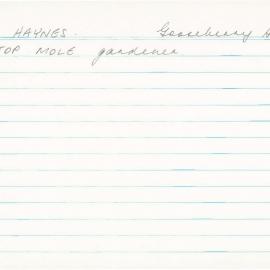 HAYNES. Gooseberry
TOP MOLE gardener